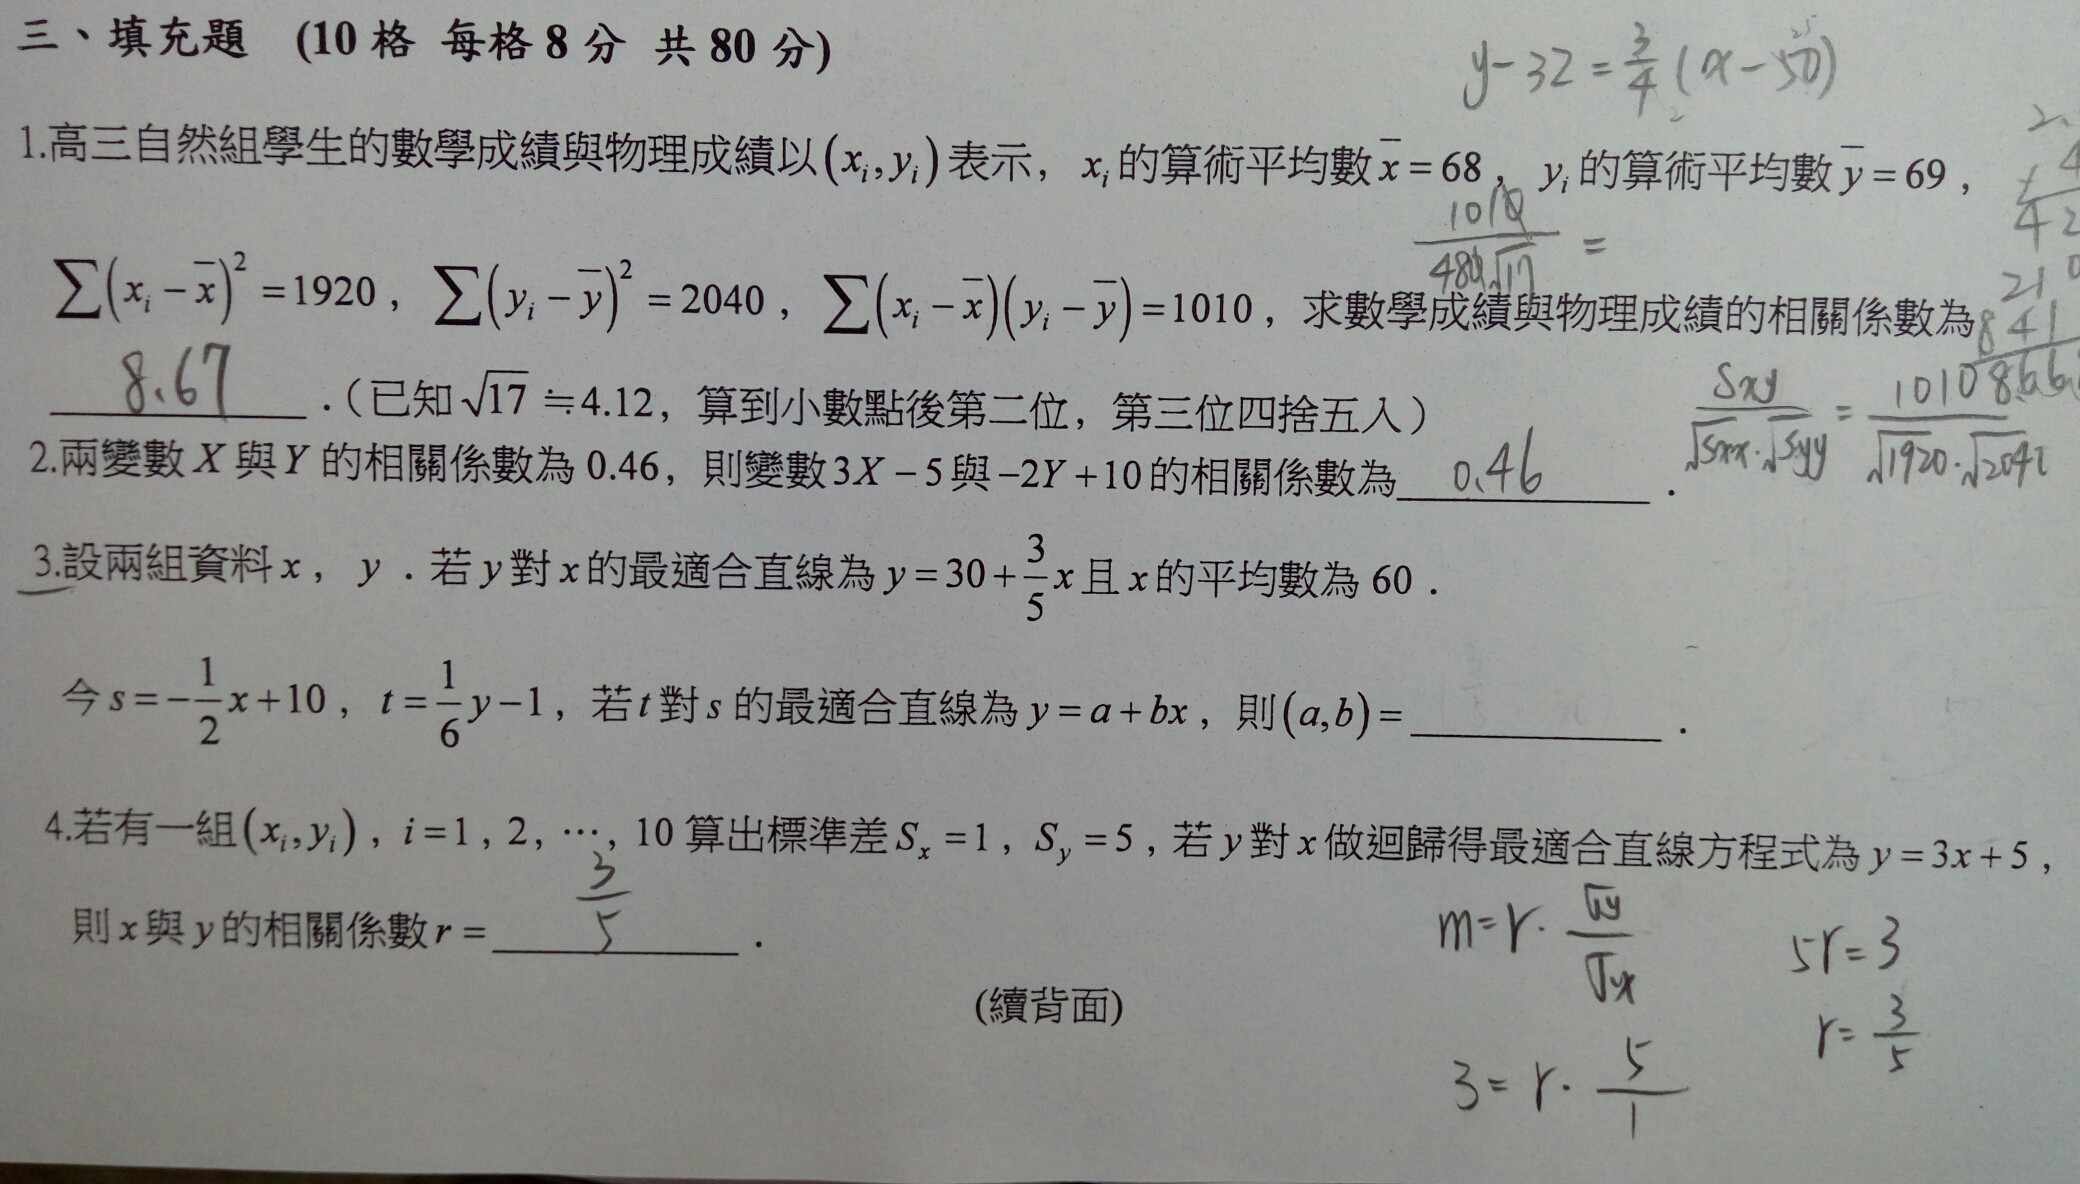 三、填充題 (10 格 每格 8 分 共 80 分)
y-32=3/4(x-50)
1.高三自然組學生的數學成績與物理成績以(xᵢ,yᵢ)表示，xᵢ的算術平均數x̄=68，yᵢ的算術平均數ȳ=69，
1010/480√17 =
∑(xᵢ-x̄)²=1920，∑(yᵢ-ȳ)²=2040，∑(xᵢ-x̄)(yᵢ-ȳ)=1010，求數學成績與物理成績的相關係數為
8.67．（已知√17≒4.12，算到小數點後第二位，第三位四捨五入）
Sxy/√Sxx·√Syy = 1010/√1920·
2.兩變數X與Y的相關係數為0.46，則變數3X-5與-2Y+10的相關係數為0.46．
3.設兩組資料x，y．若y對x的最適合直線為y=30+3/5x且x的平均數為60．
今s=-1/2x+10，t=1/6y-1，若t對s的最適合直線為y=a+bx，則(a,b)=＿＿＿＿．
4.若有一組(xᵢ,yᵢ)，i=1，2，…，10算出標準差Sₓ=1，Sᵧ=5，若y對x做迴歸得最適合直線方程式為y=3x+5，
則x與y的相關係數r=3/5．
m=r·σy/σx
5r=3
r=3/5
(續背面)
3=r·5/1